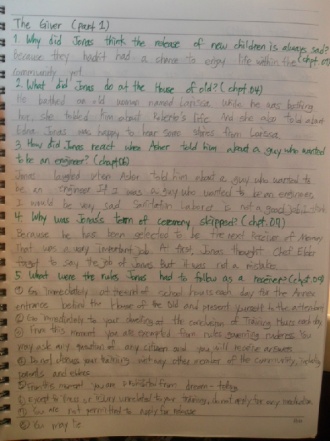 The Giver (part 1)
1. Why did Jonas think the release of new children is always sad?
Because they hadn't had a chance to enjoy life within the (chpt 01)
community yet.
2. What did Jonas do at the House of old? (chpt 04)
He bathed an old woman named Larissa. While he was bathing
her, she told him about Roberto's life. And she also told about
Edna. Jonas was happy to hear some stories from Larissa.
3. How did Jonas react when Asher told him about a guy who wanted
to be an engineer? (chpt 06)
Jonas laughed when Asher told him about a guy who wanted to
be an engineer. If I was a guy who wanted to be an engineer,
I would be very sad. Sanitation Laborer is not a good job
4. Why was Jonas's term of ceremony skipped? (chpt. 07)
Because he has been selected to be the next Receiver of Memory.
That was a very important job. At first, Jonas thought Chief Elder
forgot to say the job of Jonas but it was not a mistake.
5. What were the rules Jonas had to follow as a receiver? (chpt. 09)
① Go immediately at the end of school hours each day to the Annex
entrance behind the House of the Old and present yourself to the attendant
② Go immediately to your dwelling at the conclusion of Training Hours each day
③ From this moment you are exempted from rules governing rudeness. You
may ask any question of any citizen and you will receive answers.
④ Do not discuss your training with any other member of the community, including
parents and elders.
⑤ From this moment you are prohibited from dream-telling
⑥ Except for illness or injury unrelated to your training, do not apply for any medication
⑦ You are not permitted to apply for release
⑧ You may lie